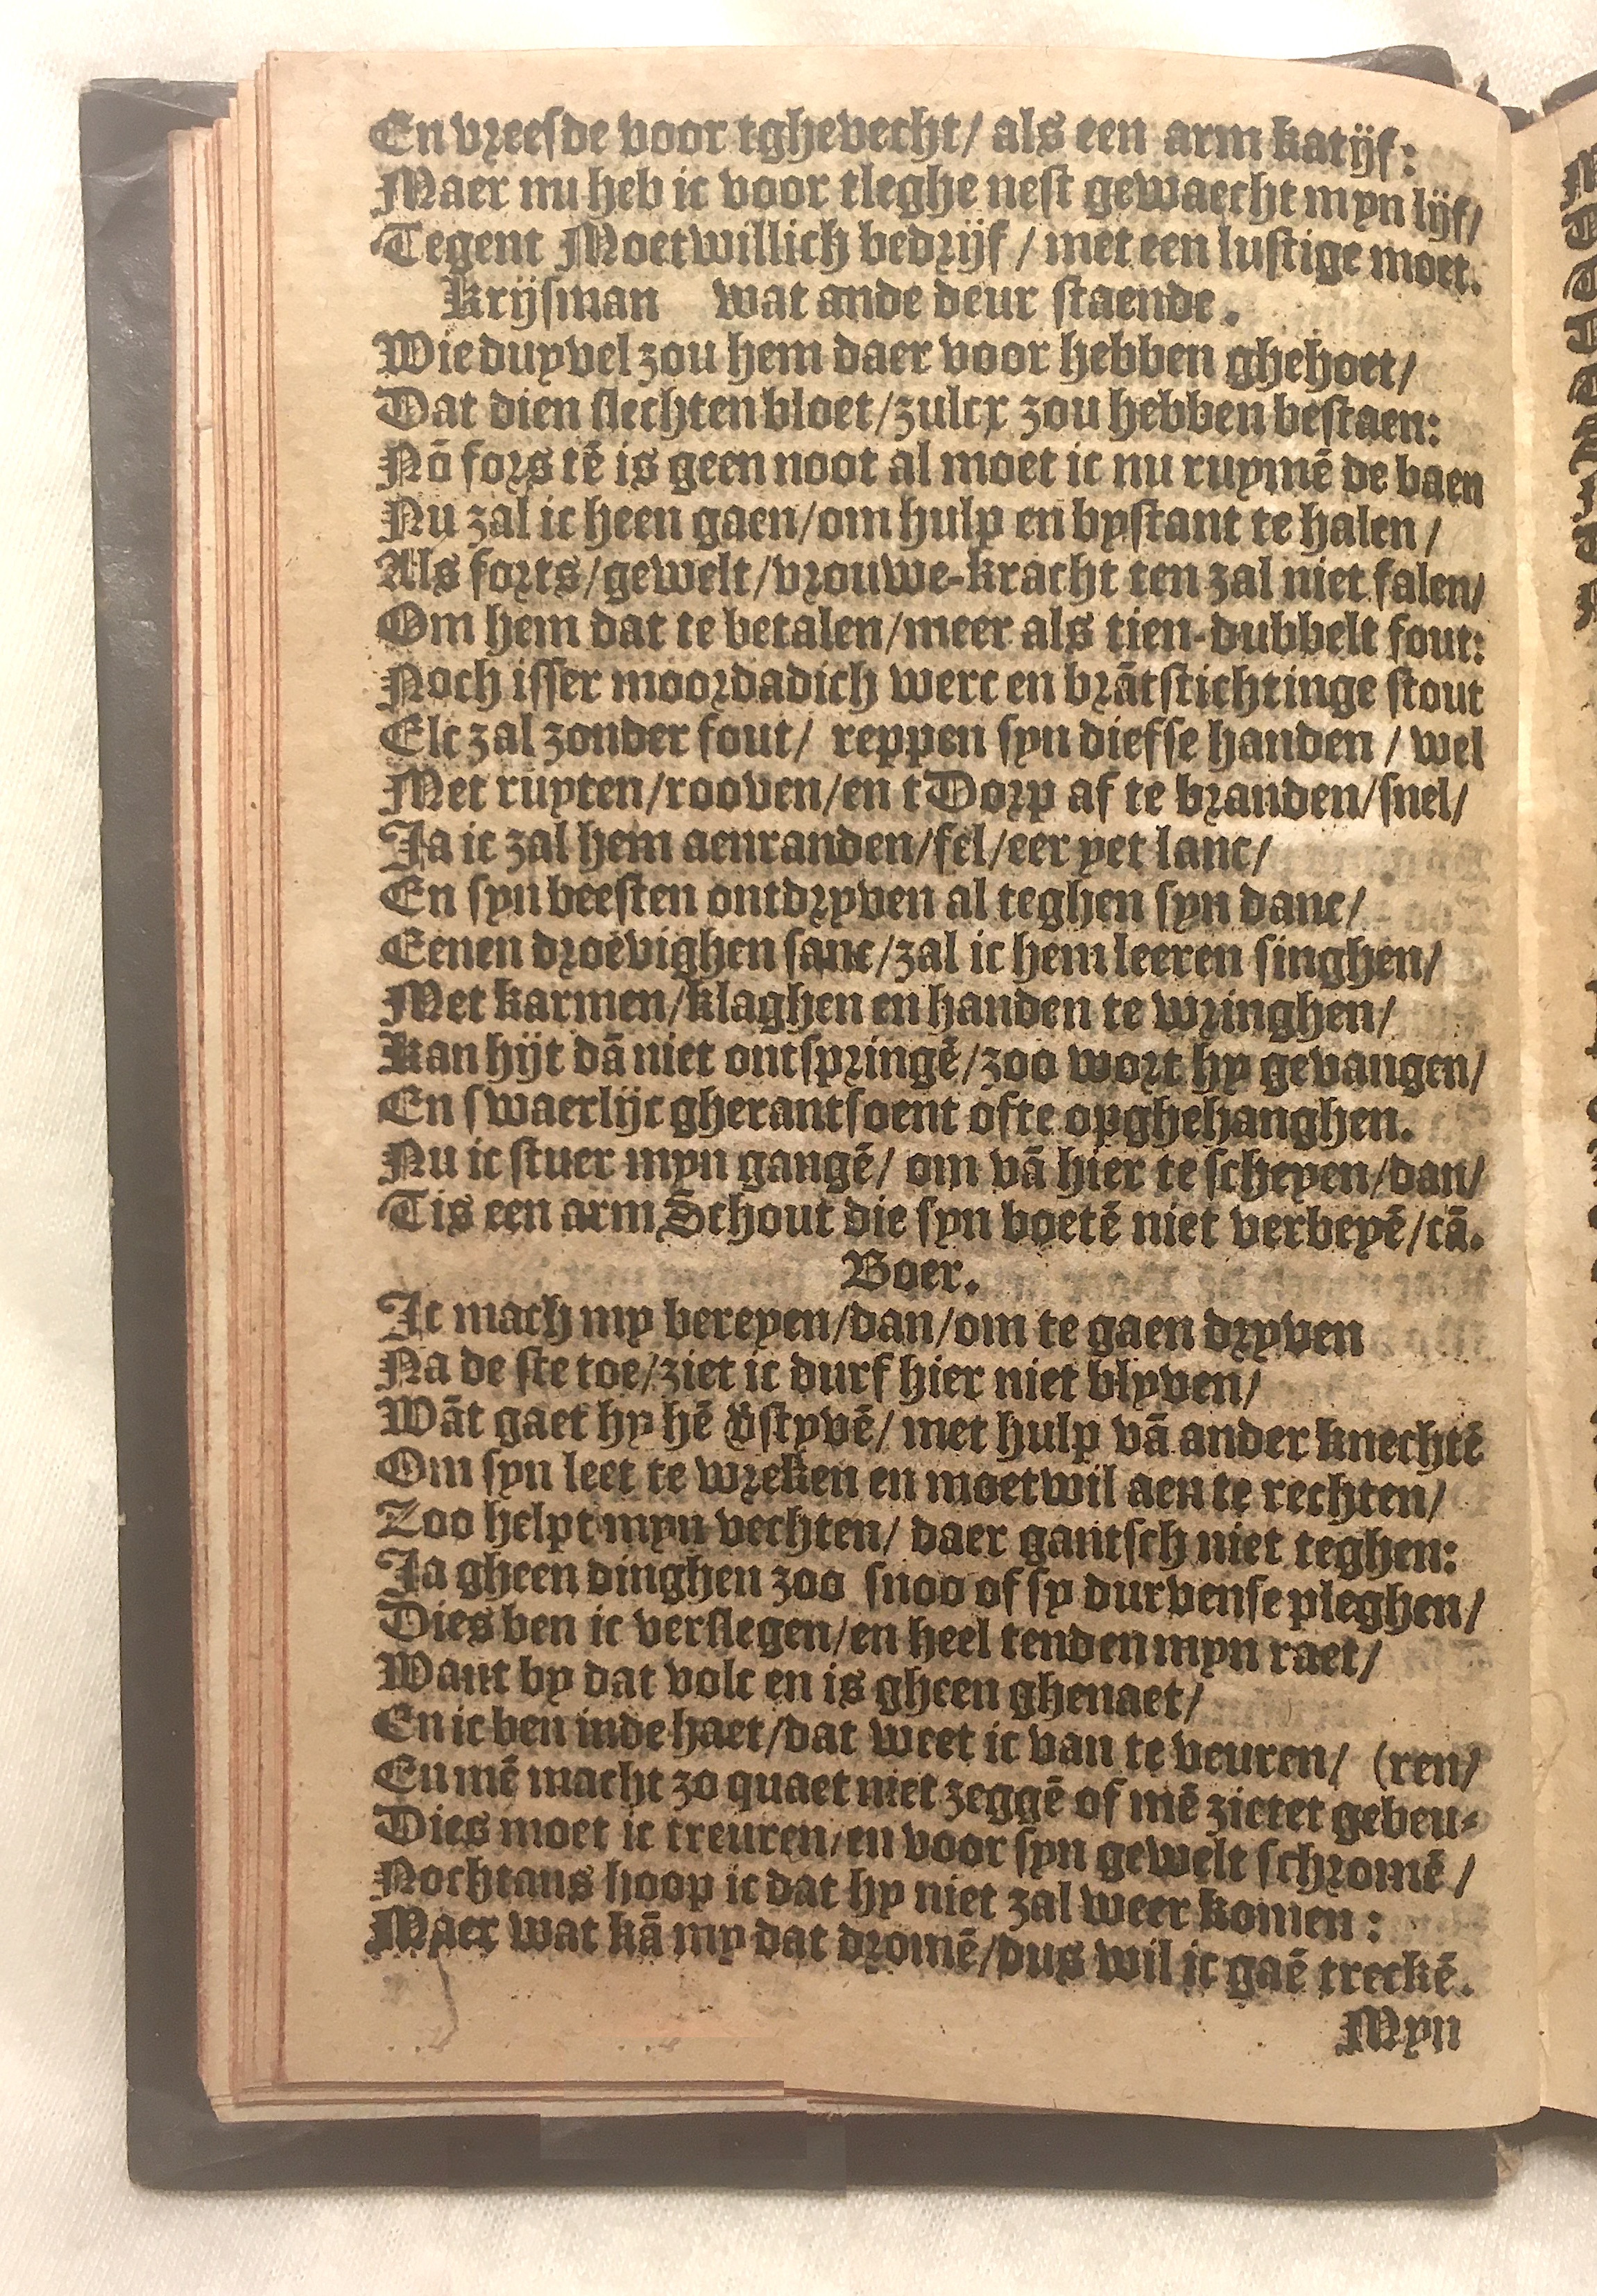 En vreesde voor tghevecht/ als een arm katijf:
Maer nu heb ic voor tleghe nest gewaecht myn lijf/
Tegent Moetwillich bedrijf / met een lustige moet.
Krijsman wat ande deur staende.
Wie duyvel zou hem daer voor hebben ghehoet/
Dat dien slechten bloet/zulcx zou hebben bestaen:
Nō fors tē is geen noot al moet ic nu ruymē de baen
Nu zal ic heen gaen/om hulp en bystant te halen/
Als forts/gewelt/vrouwe-kracht ten zal niet falen/
Om hem dat te betalen/meer als tien-dubbelt fout:
Noch isser moordadich werc en brātstichtinge stout
Elc zal zonder fout/ reppen syn diefse handen / wel
Met ruyten/rooven/en tDorp af te branden/snel/
Ja ic zal hem aenranden/fel/eer yet lanc/
En syn beesten ontdryven al teghen syn danc/
Eenen droevighen sanc/zal ic hem leeren singhen/
Met karmen/klaghen en handen te wringhen/
Kan hijt dā niet ontspringē/zoo wort hy gevangen/
En swaerlijc gherantsoent ofte opghehanghen.
Nu ic stuer myn gangē/ om vā hier te scheyen/dan/
Tis een arm Schout die syn boetē niet verbeyē/cā.
Boer.
Ic mach my bereyen/dan/om te gaen dryven
Na de ste toe/ziet ic durf hier niet blyven/
Wāt gaet hy hē v̄styvē/ met hulp vā ander knechtē
Om syn leet te wreken en moetwil aen te rechten/
Zoo helpt myn vechten/ daer gantsch niet teghen:
Ja gheen dinghen zoo snoo of sy durvense pleghen/
Dies ben ic verslegen/en heel tenden myn raet/
Want by dat volc en is gheen ghenaet/
En ic ben inde haet/dat weet ic van te veuren/ (ren/
En mē macht zo quaet niet zeggē of mē zietet gebeu-
Dies moet ic treuren/en voor syn gewelt schromē/
Nochtans hoop ic dat hy niet zal weer komen:
Maer wat kā my dat dromē/dus wil ic gaē treckē.
Myn